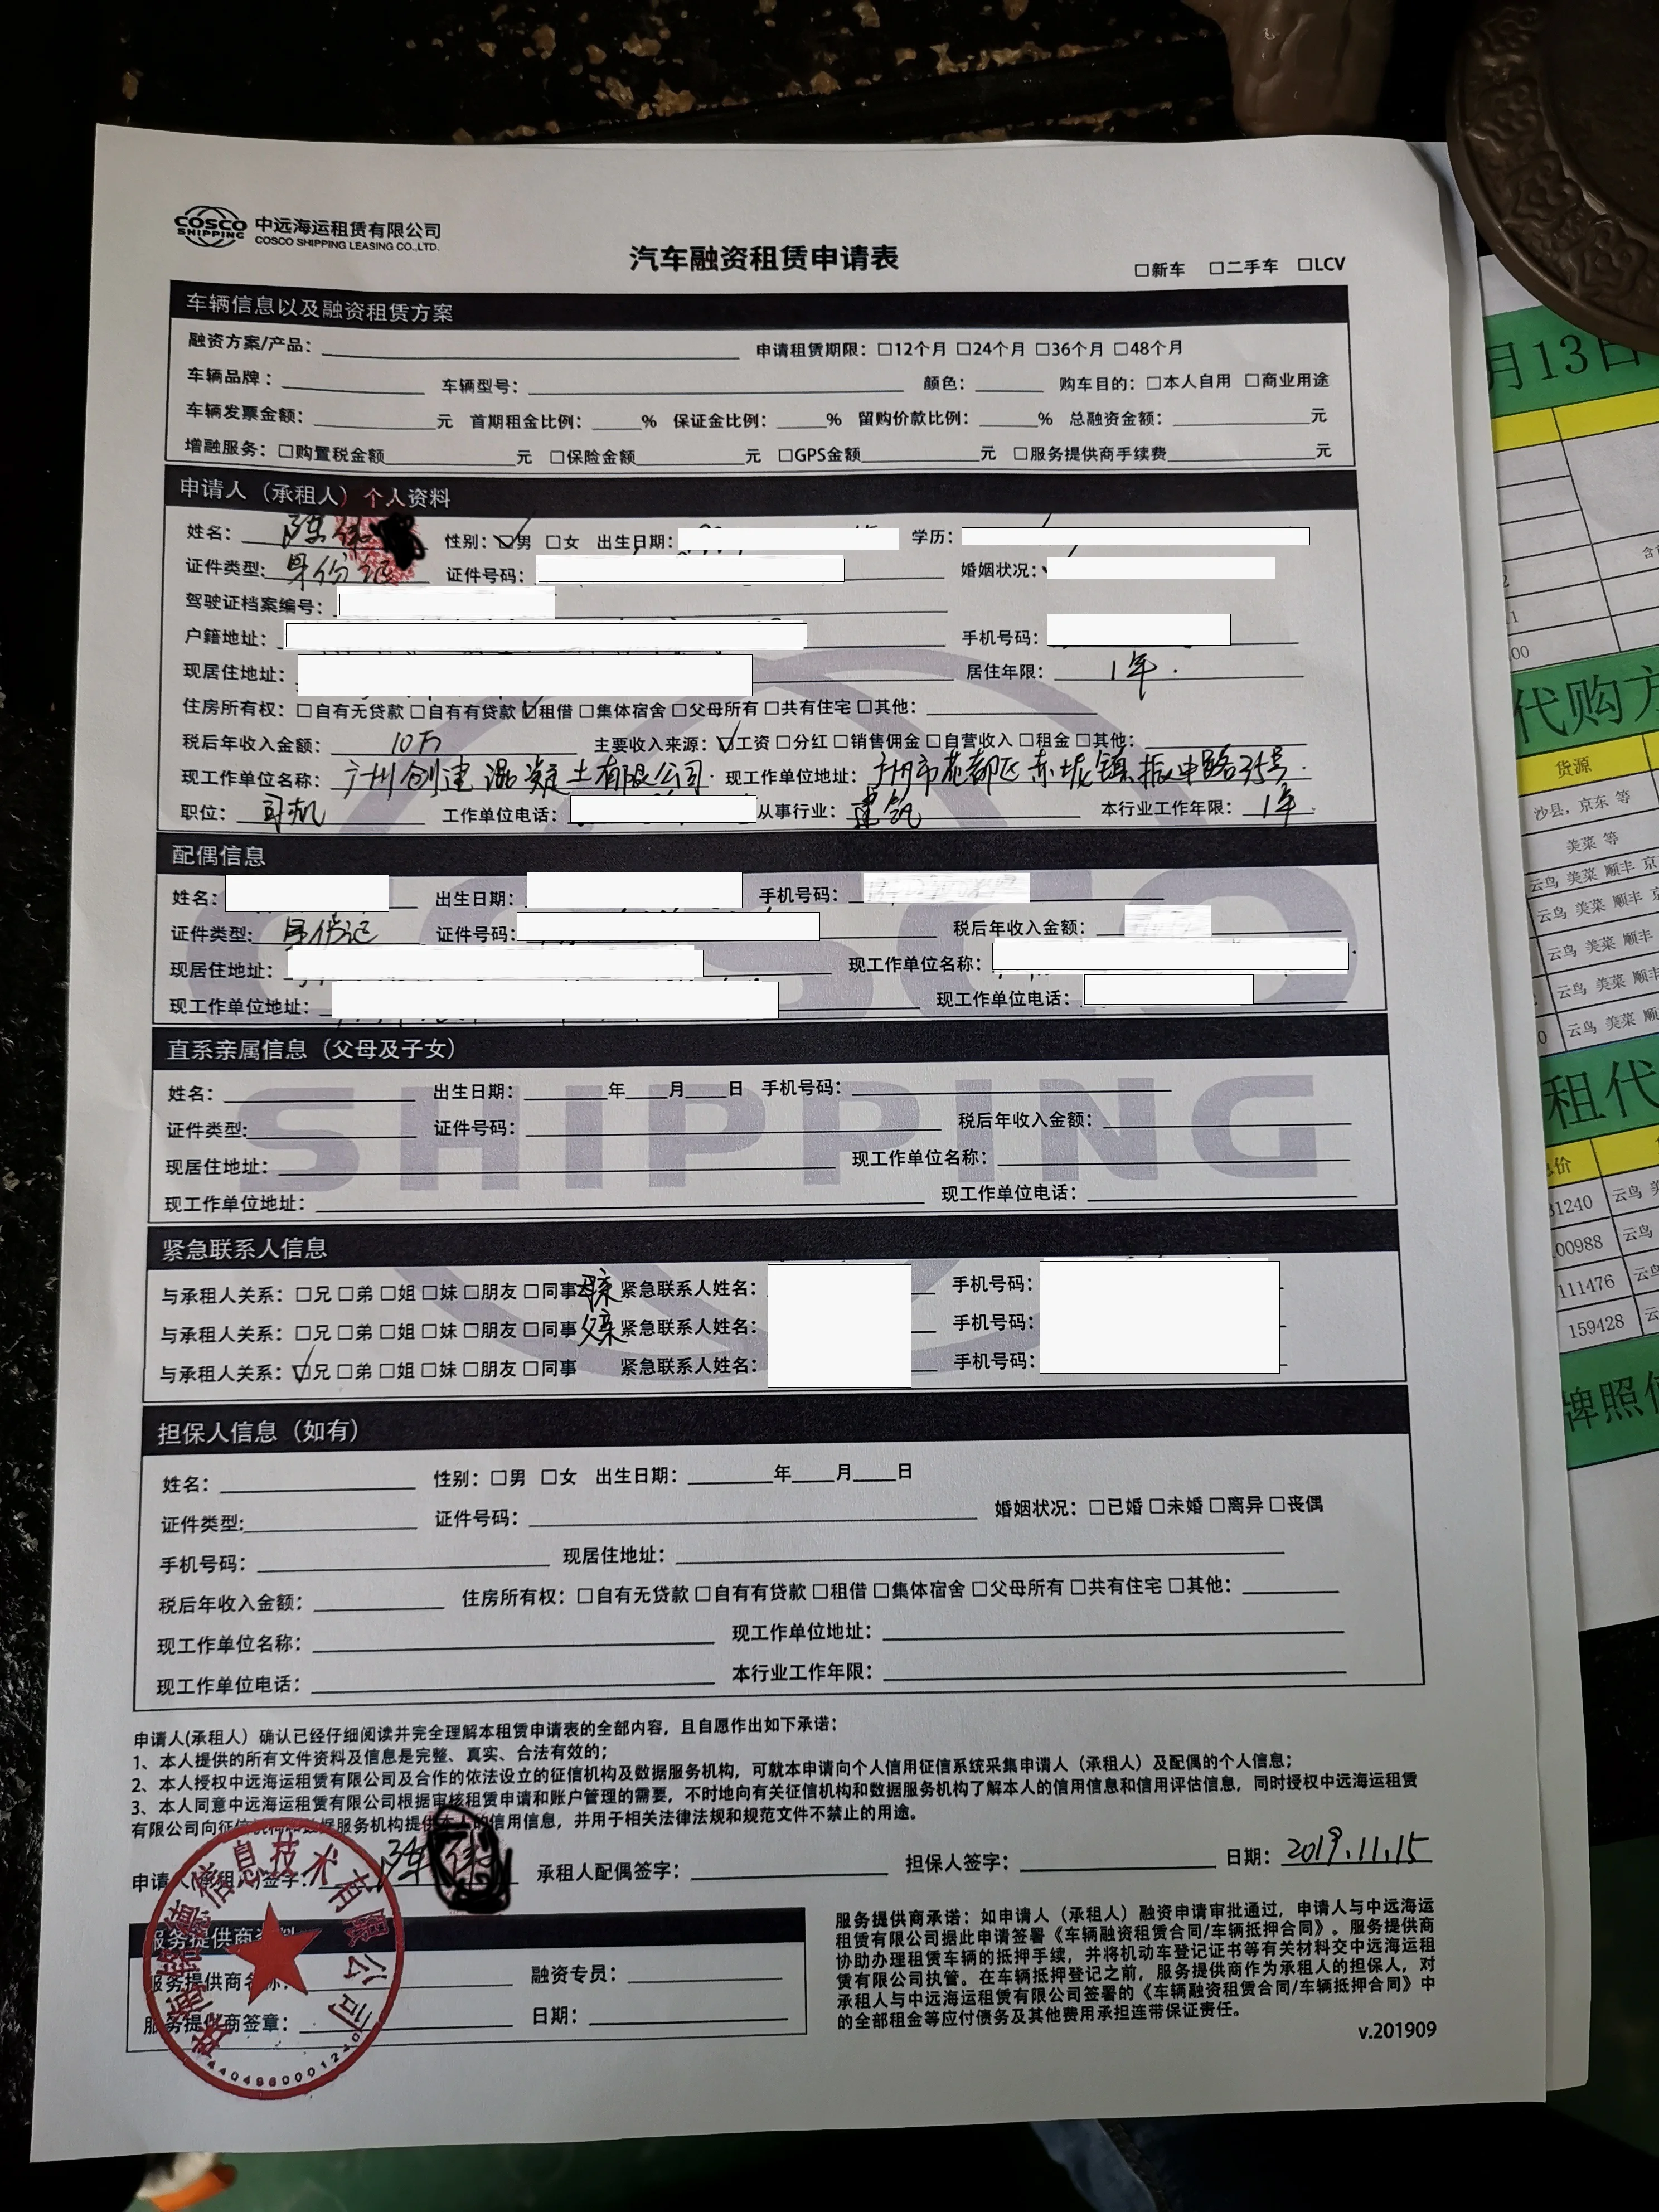 COSCO SHIPPING 中远海运租赁有限公司
COSCO SHIPPING LEASING CO.,LTD.
汽车融资租赁申请表
□新车 □二手车 □LCV
车辆信息以及融资租赁方案
融资方案/产品： 申请租赁期限：□12个月 □24个月 □36个月 □48个月
车辆品牌： 车辆型号： 颜色： 购车目的：□本人自用 □商业用途
车辆发票金额： 元 首期租金比例： % 保证金比例： % 留购价款比例： % 总融资金额： 元
增融服务：□购置税金额 元 □保险金额 元 □GPS金额 元 □服务提供商手续费 元
申请人（承租人）个人资料
姓名：陈 性别：☑男 □女 出生日期： 学历：
证件类型：身份证 证件号码： 婚姻状况：
驾驶证档案编号：
户籍地址： 手机号码：
现居住地址： 居住年限：1年
住房所有权：□自有无贷款 □自有有贷款 ☑租借 □集体宿舍 □父母所有 □共有住宅 □其他：
税后年收入金额：10万 主要收入来源：☑工资 □分红 □销售佣金 □自营收入 □租金 □其他：
现工作单位名称：广州创建混凝土有限公司 现工作单位地址：广州市花都区赤坭镇振中路35号
职位：司机 工作单位电话： 从事行业：建筑 本行业工作年限：1年
配偶信息
姓名： 出生日期： 手机号码：
证件类型：身份证 证件号码： 税后年收入金额：
现居住地址： 现工作单位名称：
现工作单位地址： 现工作单位电话：
直系亲属信息（父母及子女）
姓名： 出生日期： 年 月 日 手机号码：
证件类型: 证件号码： 税后年收入金额：
现居住地址： 现工作单位名称：
现工作单位地址： 现工作单位电话：
COSCO
SHIPPING
紧急联系人信息
与承租人关系：□兄 □弟 □姐 □妹 □朋友 □同事 母亲 紧急联系人姓名： 手机号码：
与承租人关系：□兄 □弟 □姐 □妹 □朋友 □同事 父亲 紧急联系人姓名： 手机号码：
与承租人关系：☑兄 □弟 □姐 □妹 □朋友 □同事 紧急联系人姓名： 手机号码：
担保人信息（如有）
姓名： 性别：□男 □女 出生日期： 年 月 日
证件类型: 证件号码： 婚姻状况：□已婚 □未婚 □离异 □丧偶
手机号码： 现居住地址：
税后年收入金额： 住房所有权：□自有无贷款 □自有有贷款 □租借 □集体宿舍 □父母所有 □共有住宅 □其他：
现工作单位名称： 现工作单位地址：
现工作单位电话： 本行业工作年限：
申请人(承租人）确认已经仔细阅读并完全理解本租赁申请表的全部内容，且自愿作出如下承诺：
1、本人提供的所有文件资料及信息是完整、真实、合法有效的；
2、本人授权中远海运租赁有限公司及合作的依法设立的征信机构及数据服务机构，可就本申请向个人信用征信系统采集申请人（承租人）及配偶的个人信息；
3、本人同意中远海运租赁有限公司根据审核租赁申请和账户管理的需要，不时地向有关征信机构和数据服务机构了解本人的信用信息和信用评估信息，同时授权中远海运租赁
有限公司向征信机构和数据服务机构提供本人的信用信息，并用于相关法律法规和规范文件不禁止的用途。
申请人(承租人)签字：陈 承租人配偶签字： 担保人签字： 日期：2019.11.15
服务提供商资料
服务提供商名称： 融资专员：
服务提供商签章： 日期：
信息技术有限公司
服务提供商承诺：如申请人（承租人）融资申请审批通过，申请人与中远海运
租赁有限公司据此申请签署《车辆融资租赁合同/车辆抵押合同》。服务提供商
协助办理租赁车辆的抵押手续，并将机动车登记证书等有关材料交中远海运租
赁有限公司执管。在车辆抵押登记之前，服务提供商作为承租人的担保人，对
承租人与中远海运租赁有限公司签署的《车辆融资租赁合同/车辆抵押合同》中
的全部租金等应付债务及其他费用承担连带保证责任。
v.201909
月13日
代购方
货源
沙县，京东 等
美菜 等
云鸟 美菜 顺丰 京
云鸟 美菜 顺丰 京
云鸟 美菜 顺丰
云鸟 美菜 顺丰
云鸟 美菜 顺
租代
31240 云鸟 美
00988 云鸟
111476 云鸟
159428
牌照